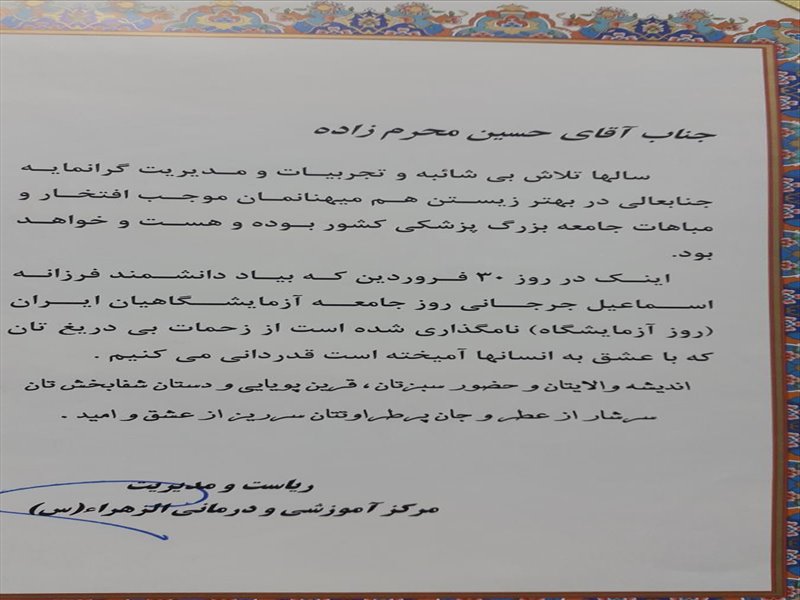 جناب آقای حسین محرم زاده
سالها تلاش بی شائبه و تجربیات و مدیریت گرانمایه
جنابعالی در بهتر زیستن هم میهنانمان موجب افتخار و
مباهات جامعه بزرگ پزشکی کشور بوده و هست و خواهد
بود.
اینک در روز ۳۰ فروردین که بیاد دانشمند فرزانه
اسماعیل جرجانی روز جامعه آزمایشگاهیان ایران
(روز آزمایشگاه) نامگذاری شده است از زحمات بی دریغ تان
که با عشق به انسانها آمیخته است قدردانی می کنیم .
اندیشه والایتان و حضور سبزتان، قرین پویایی و دستان شفابخش تان
سرشار از عطر و جان پرطراوتتان سرریز از عشق و امید .
ریاست و مدیریت
مرکز آموزشی و درمانی الزهراء(س)